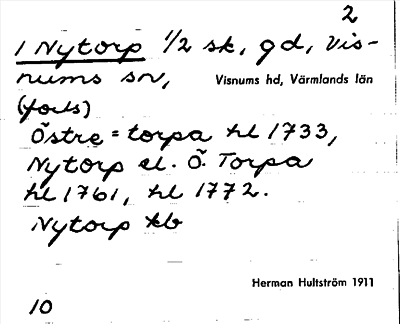 2
1 Nytorp 1/2 sk, gd, Vis-
nums sn,
Visnums hd, Värmlands län
(forts)
Östre=torpa hl 1733,
Nytorp el. Ö. Torpa
hl 1761, hl 1772.
Nytorp kb
Herman Hultström 1911
10